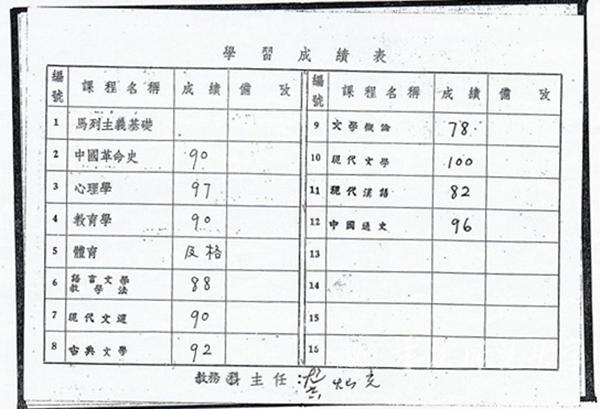 學習成績表
編號 課程名稱 成績 備攷
1 馬列主義基礎
2 中國革命史 90
3 心理學 97
4 教育學 90
5 體育 及格
6 語言文學教學法 88
7 現代文選 90
8 古典文學 92
編號 課程名稱 成績 備攷
9 文學概論 78
10 現代文學 100
11 現代漢語 82
12 中國通史 96
13
14
15
16
教務科主任: